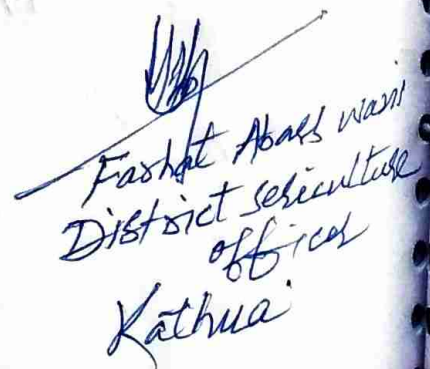 Farhat Abass wani
District sericulture
officer
Kathua